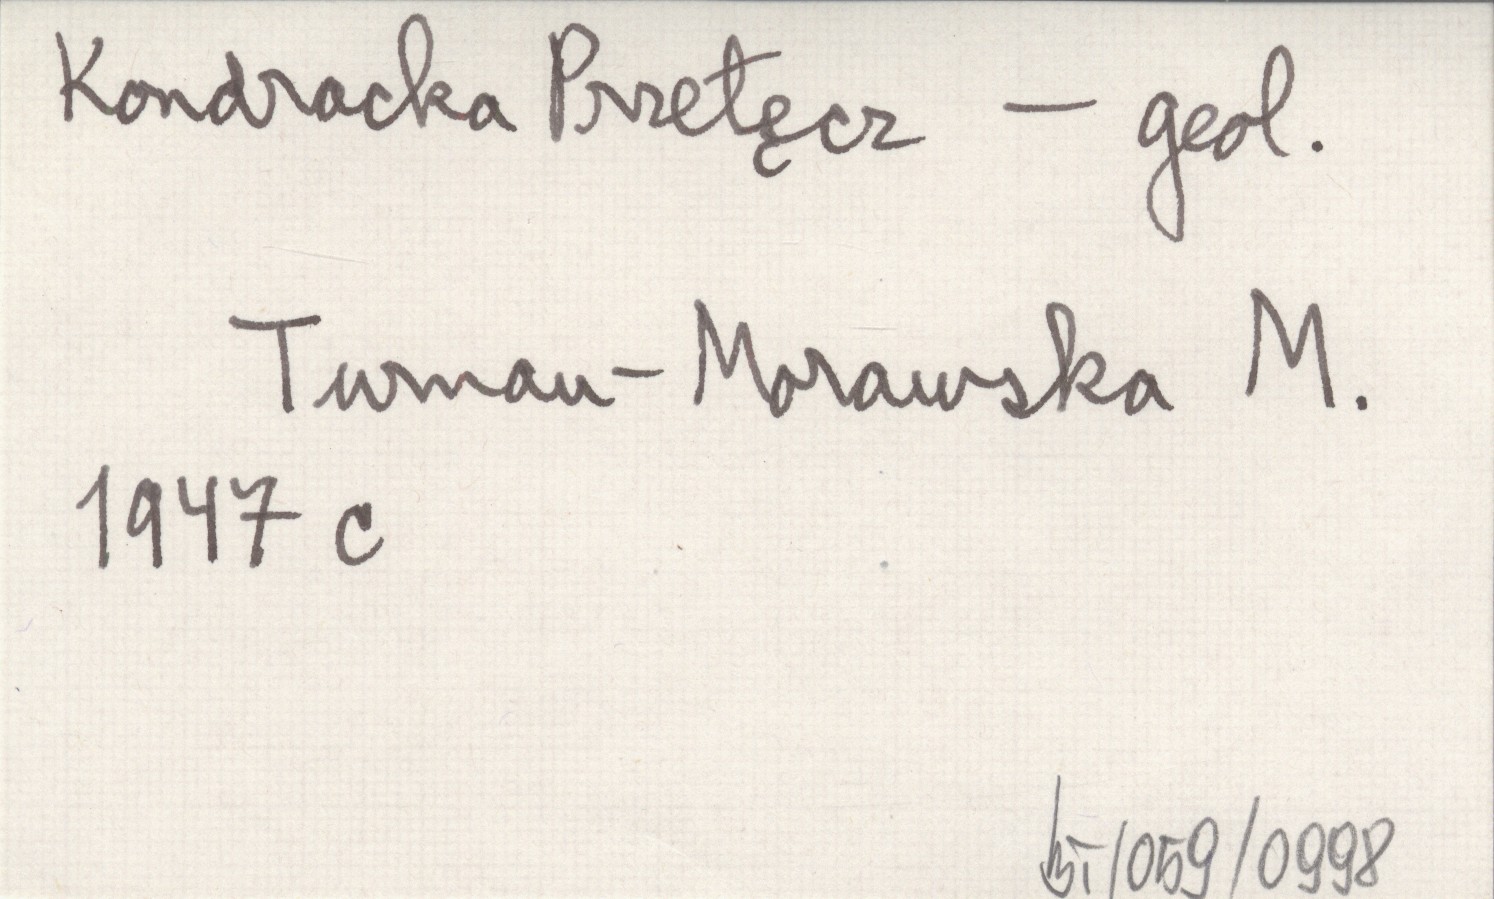 Kondracka Przełęcz — geol.
Turnau-Morawska M.
1947 c
bi/059/0998